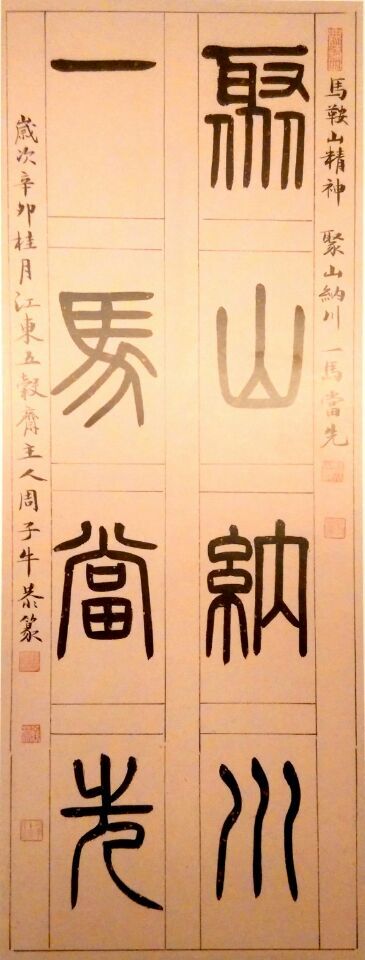 馬鞍山精神 聚山納川 一馬當先
聚山納川
一馬當先
歲次辛卯桂月江東五穀齋主人周子牛恭篆